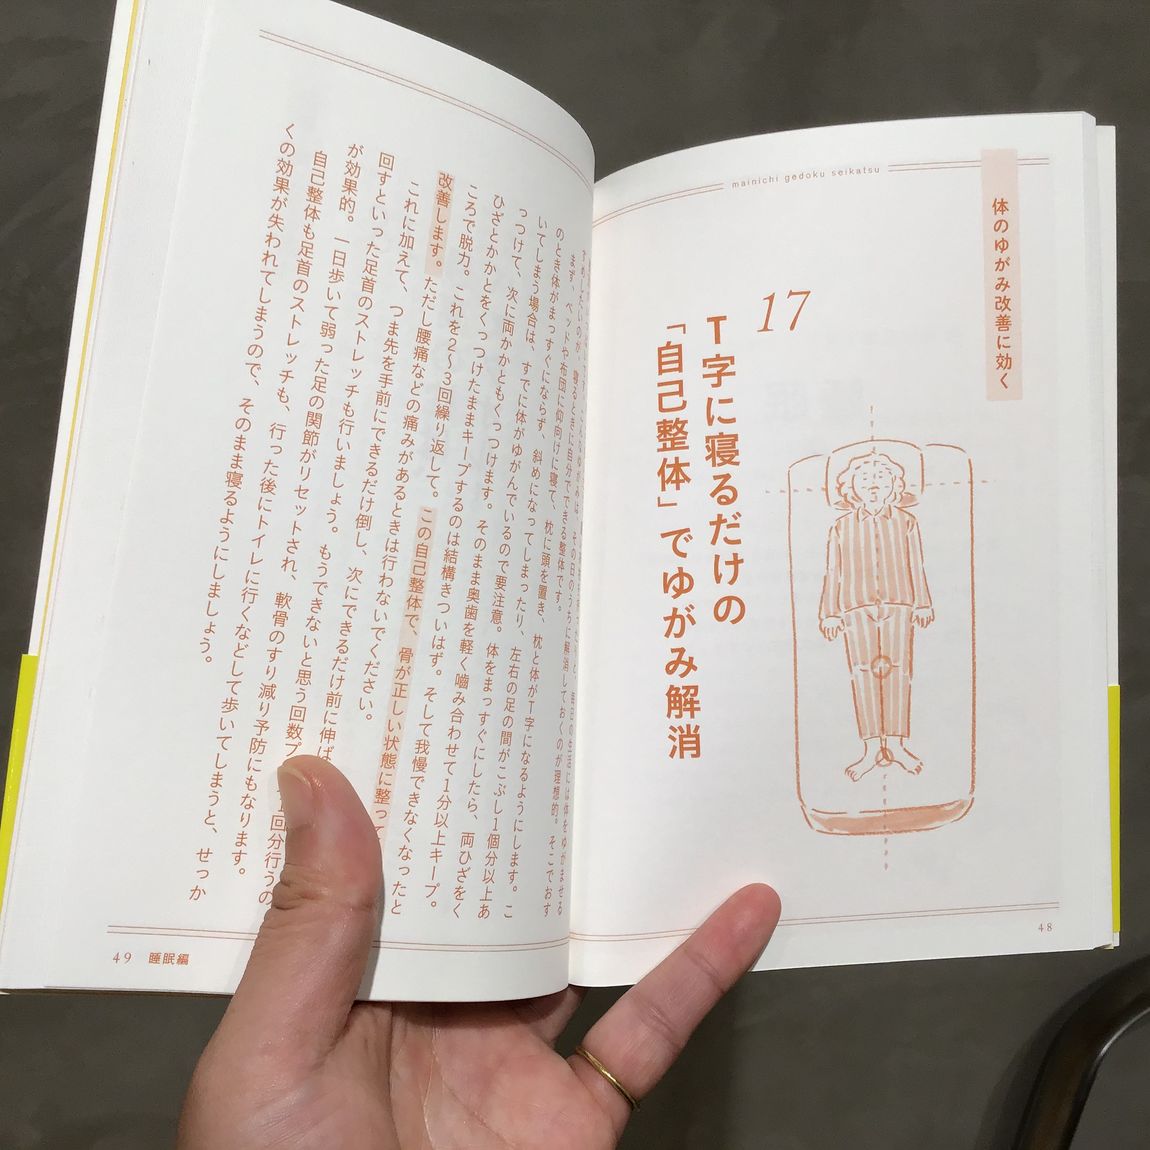 mainichi gedoku seikatsu
体のゆがみ改善に効く
17
T字に寝るだけの
「自己整体」でゆがみ解消
48
明日の生活には体をゆがませる
その日のうちに解消しておくのが理想的。そこでおす
すめしたいのが、寝るときに自分でできる整体です。
まず、ベッドや布団に仰向けに寝て、枕に頭を置き、枕と体がT字になるようにします。こ
のとき体がまっすぐにならず、斜めになってしまったり、左右の足の間がこぶし1個分以上あ
いてしまう場合は、すでに体がゆがんでいるので要注意。体をまっすぐにしたら、両ひざをく
っつけて、次に両かかともくっつけます。そのまま奥歯を軽く嚙み合わせて1分以上キープ。
ひざとかかとをくっつけたままキープするのは結構きついはず。そして我慢できなくなったと
ころで脱力。これを2〜3回繰り返して。この自己整体で、骨が正しい状態に整っ
改善します。ただし腰痛などの痛みがあるときは行わないでください。
これに加えて、つま先を手前にできるだけ倒し、次にできるだけ前に伸ば
回すといった足首のストレッチも行いましょう。もうできないと思う回数プ 1回分行うの
が効果的。一日歩いて弱った足の関節がリセットされ、軟骨のすり減り予防にもなります。
自己整体も足首のストレッチも、行った後にトイレに行くなどして歩いてしまうと、せっか
くの効果が失われてしまうので、そのまま寝るようにしましょう。
49 睡眠編